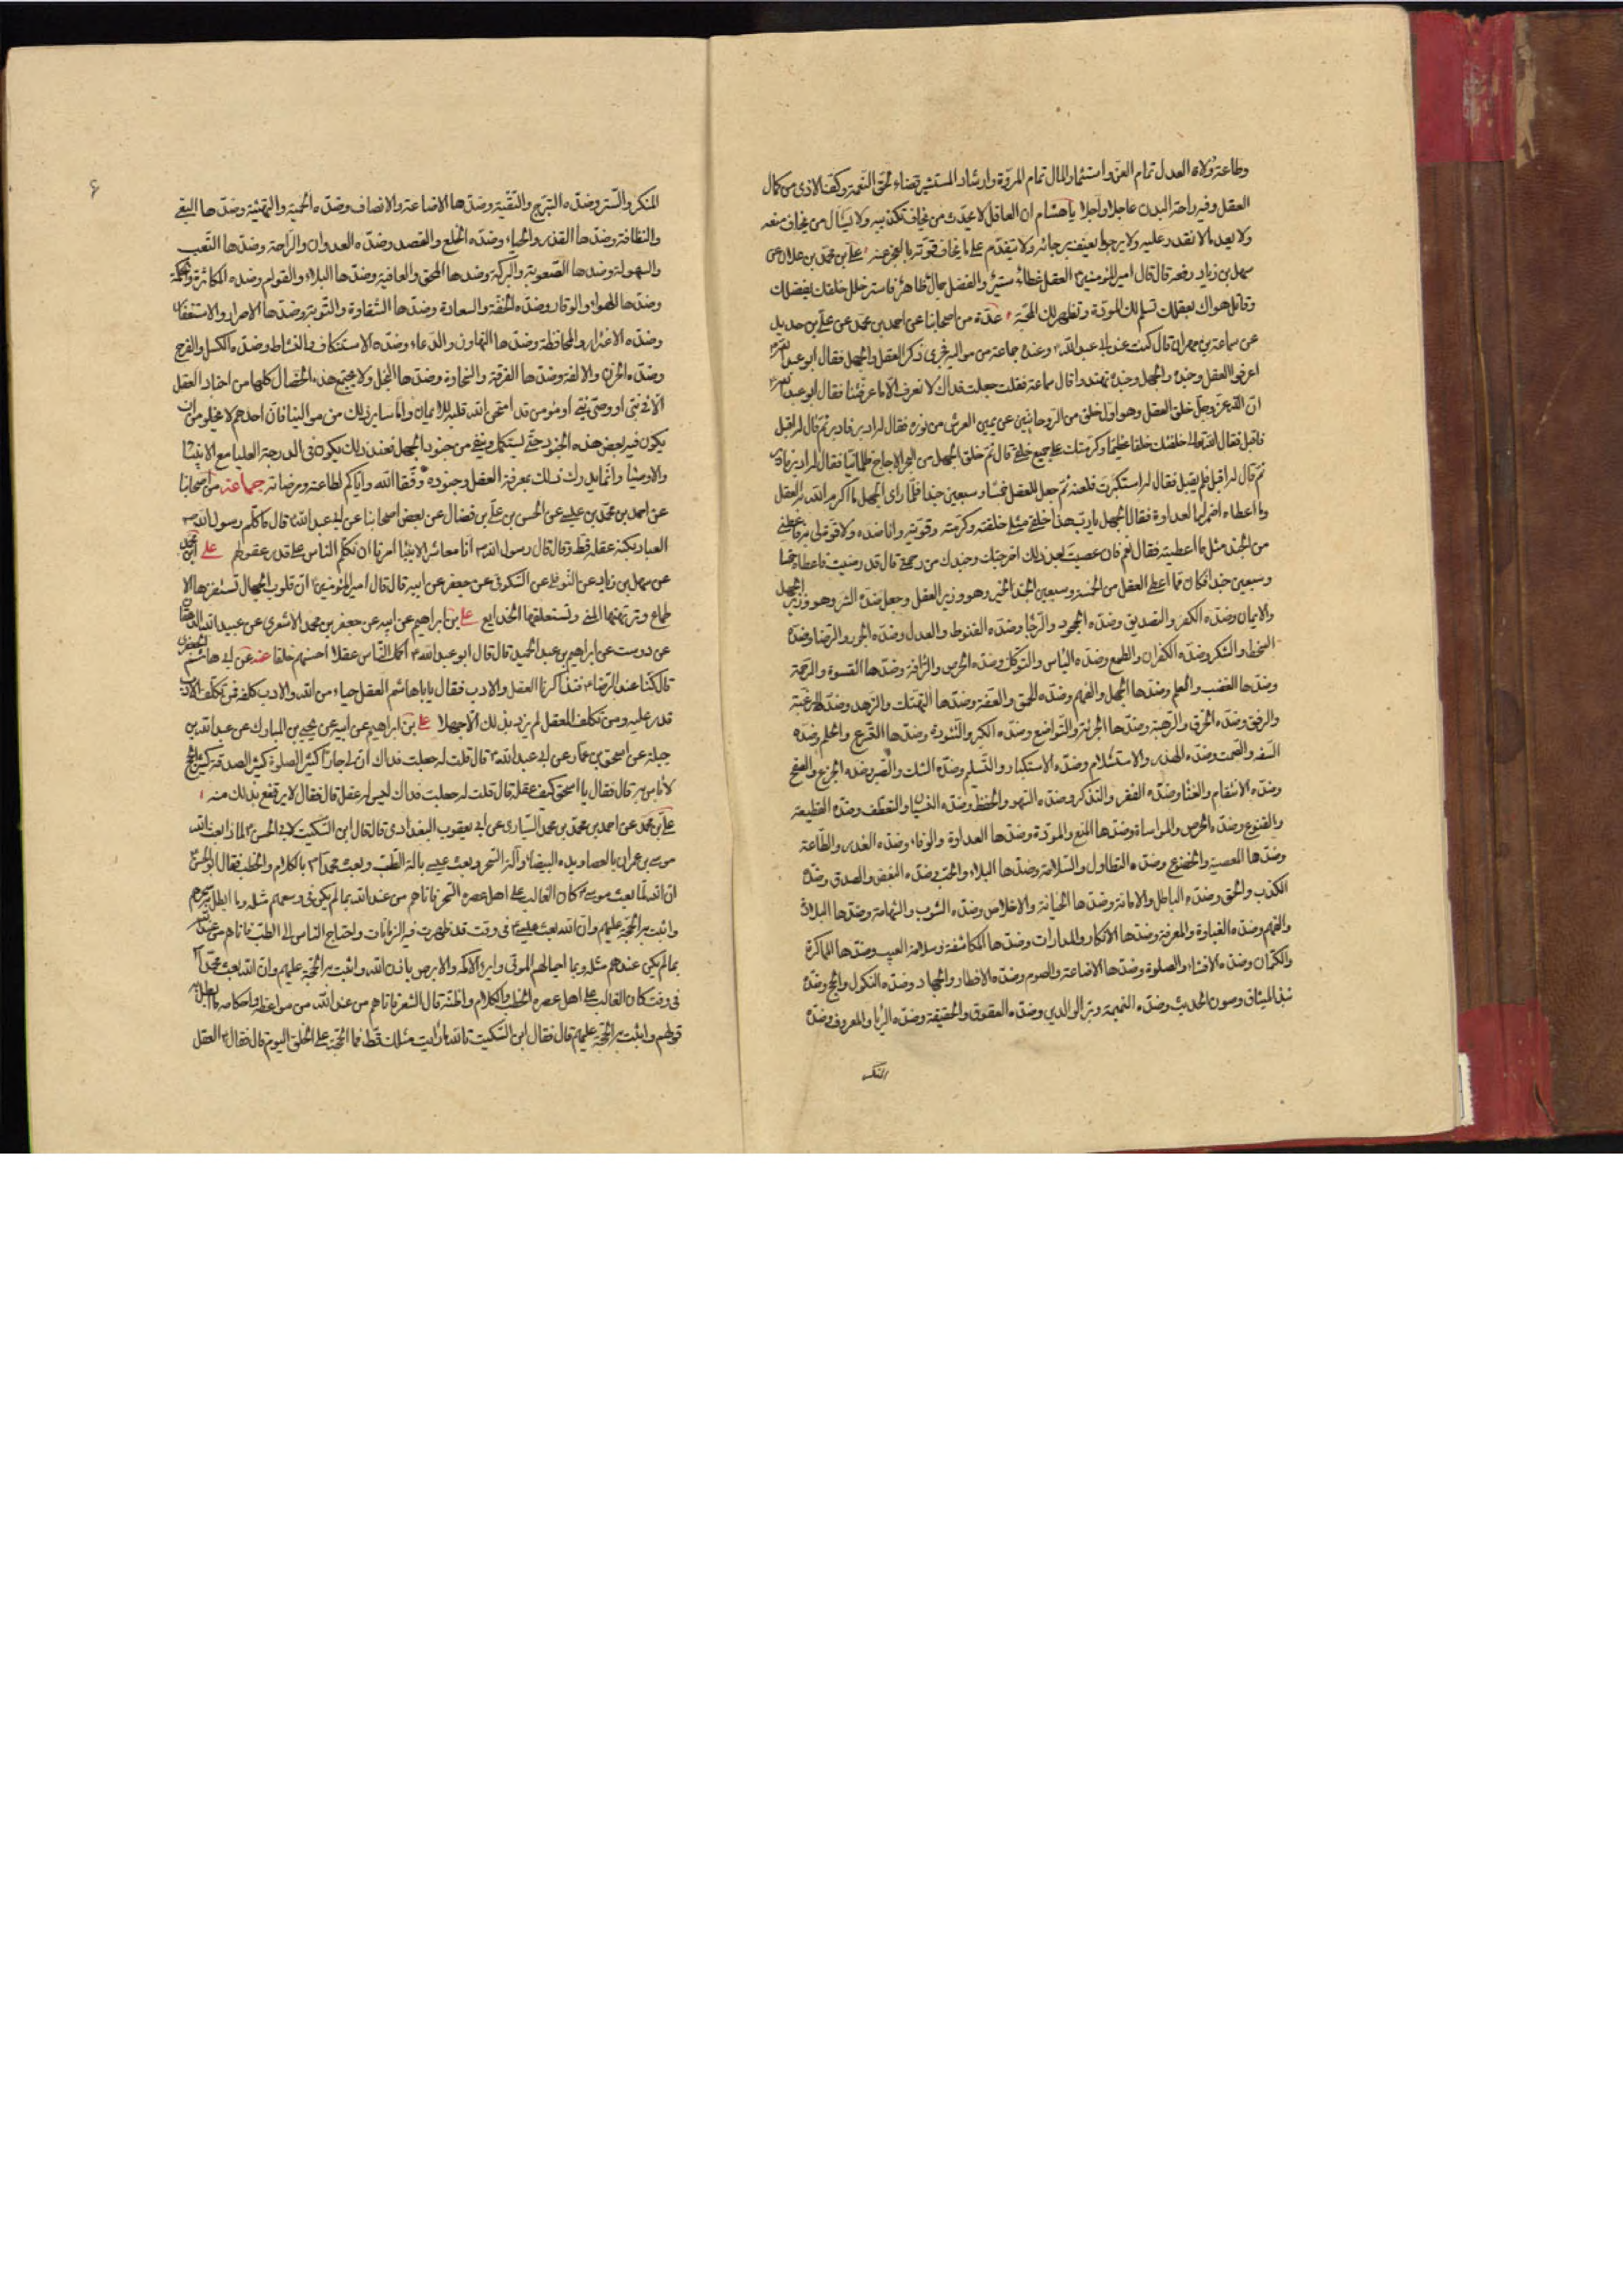 وطاعة ولاة العدل تمام العز واستثمار المال تمام المروة وارشاد المستشير قضاء لحق النعمة وكف الاذى من كمال
العقل وفيه راحة البدن عاجلا واجلا يا هشام ان العاقل لا يحدث من يخاف تكذيبه ولا يسأل من يخاف منعه
ولا يعد ما لا يقدر عليه ولا يرجو ما يعنف برجائه ولا يتقدم على ما يخاف فوته بالعجز عنه علي بن محمد عن
سهل بن زياد رفعه قال قال امير المؤمنين ع العقل غطاء ستير والفضل جمال ظاهر فاستر خلل خلقك بفضلك
وقاتل هواك بعقلك تسلم لك المودة وتظهر لك المحبة عدة من اصحابنا عن احمد بن محمد عن علي بن حديد
عن سماعة بن مهران قال كنت عند ابي عبد الله ع وعنده جماعة من مواليه فجرى ذكر العقل والجهل فقال ابو عبد الله ع
اعرفوا العقل وجنده والجهل وجنده تهتدوا قال سماعة فقلت جعلت فداك لا نعرف الا ما عرفتنا فقال ابو عبد الله ع
ان الله عز وجل خلق العقل وهو اول خلق من الروحانيين عن يمين العرش من نوره فقال له ادبر فادبر ثم قال له اقبل
فاقبل فقال الله تعالى خلقتك خلقا عظيما وكرمتك على جميع خلقي قال ثم خلق الجهل من البحر الاجاج ظلمانيا فقال له ادبر فادبر
ثم قال له اقبل فلم يقبل فقال له استكبرت فلعنه ثم جعل للعقل خمسة وسبعين جندا فلما راى الجهل ما اكرم الله به العقل
وما اعطاه اضمر له العداوة فقال الجهل يا رب هذا خلق مثلي خلقته وكرمته وقويته وانا ضده ولا قوة لي به فاعطني
من الجند مثل ما اعطيته فقال نعم فان عصيت بعد ذلك اخرجتك وجندك من رحمتي قال قد رضيت فاعطاه خمسة
وسبعين جندا فكان مما اعطى العقل من الخمسة وسبعين الجند الخير وهو وزير العقل وجعل ضده الشر وهو وزير الجهل
والايمان وضده الكفر والتصديق وضده الجحود والرجا وضده القنوط والعدل وضده الجور والرضا وضده
السخط والشكر وضده الكفران والطمع وضده الياس والتوكل وضده الحرص والرافة وضدها القسوة والرحمة
وضدها الغضب والعلم وضدها الجهل والفهم وضده الحمق والعفة وضدها التهتك والزهد وضده الرغبة
والرفق وضده الخرق والرهبة وضدها الجرئة والتواضع وضده الكبر والتؤدة وضدها التسرع والحلم وضده
السفه والصمت وضده الهذر والاستسلام وضده الاستكبار والتسليم وضده الشك والصبر وضده الجزع والصفح
وضده الانتقام والغنا وضده الفقر والتذكر وضده السهو والحفظ وضده النسيان والتعطف وضده القطيعة
والقنوع وضده الحرص والمواساة وضدها المنع والمودة وضدها العداوة والوفاء وضده الغدر والطاعة
وضدها المعصية والخضوع وضده التطاول والسلامة وضدها البلاء والحب وضده البغض والصدق وضده
الكذب والحق وضده الباطل والامانة وضدها الخيانة والاخلاص وضده الشوب والشهامة وضدها البلادة
والفهم وضده الغباوة والمعرفة وضدها الانكار والمدارات وضدها المكاشفة وسلامة الغيب وضدها المماكرة
والكتمان وضده الافشاء والصلوة وضدها الاضاعة والصوم وضده الافطار والجهاد وضده النكول والحج وضده
نبذ الميثاق وصون الحديث وضده النميمة وبر الوالدين وضده العقوق والحقيقة وضده الريا والمعروف وضده
المنكر
۶
المنكر والستر وضده التبرج والتقية وضدها الاضاعة والانصاف وضده الحمية والتهيئة وضدها البغي
والنظافة وضدها القذر والحياء وضده الخلع والقصد وضده العدوان والراحة وضدها التعب
والسهولة وضدها الصعوبة والبركة وضدها المحق والعافية وضدها البلاء والقوام وضده المكاثرة والحكمة
وضدها الهواء والوقار وضده الخفة والسعادة وضدها الشقاوة والتوبة وضدها الاصرار والاستغفار
وضده الاغترار والمحافظة وضدها التهاون والدعاء وضده الاستنكاف والنشاط وضده الكسل والفرح
وضده الحزن والالفة وضدها الفرقة والسخاوة وضدها البخل ولا يجتمع هذه الخصال كلها من اجناد العقل
الا في نبي او وصي نبي او مؤمن قد امتحن الله قلبه للايمان واما ساير ذلك من موالينا فان احدهم لا يخلو من ان
يكون فيه بعض هذه الجنود حتى يستكمل وينقي من جنود الجهل فعند ذلك يكون في الدرجة العليا مع الانبياء
والاوصياء وانما يدرك ذلك بمعرفة العقل وجنوده وفقنا الله واياكم لطاعته ومرضاته جماعة من اصحابنا
عن احمد بن محمد بن عيسى عن الحسن بن علي بن فضال عن بعض اصحابنا عن ابي عبد الله ع قال ما كلم رسول الله ص
العباد بكنه عقله قط وقال قال رسول الله ص انا معاشر الانبياء امرنا ان نكلم الناس على قدر عقولهم علي بن محمد
عن سهل بن زياد عن النوفلي عن السكوني عن جعفر عن ابيه قال قال امير المؤمنين ع ان قلوب الجهال تستفزها الا
طماع وترتهنها المنى وتستعلقها الخدايع علي بن ابراهيم عن ابيه عن جعفر بن محمد الاشعري عن عبيد الله الدهقان
عن درست عن ابراهيم بن عبد الحميد قال قال ابو عبد الله ع اكمل الناس عقلا احسنهم خلقا عنه عن ابي هاشم الجعفري
قال كنا عند الرضا ع فتذاكرنا العقل والادب فقال يا با هاشم العقل حباء من الله والادب كلفة فمن تكلف الادب
قدر عليه ومن تكلف العقل لم يزد بذلك الا جهلا علي بن ابراهيم عن ابيه عن يحيى بن المبارك عن عبد الله بن
جبلة عن اسحق بن عمار عن ابي عبد الله ع قال قلت له جعلت فداك ان لي جارا كثير الصلوة كثير الصدقة كثير الحج
لا باس به قال فقال يا اسحق كيف عقله قال قلت له جعلت فداك ليس له عقل قال فقال لا يرتفع بذلك منه
علي بن محمد عن احمد بن محمد بن محمد السياري عن ابي يعقوب البغدادي قال قال ابن السكيت لابي الحسن ع لماذا بعث الله
موسى بن عمران بالعصا ويده البيضاء وآلة السحر وبعث عيسى بالة الطب وبعث محمدا ص بالكلام والخطب فقال ابو الحسن ع
ان الله لما بعث موسى ع كان الغالب على اهل عصره السحر فاتاهم من عند الله بما لم يكن في وسعهم مثله وما ابطل به سحرهم
واثبت به الحجة عليهم وان الله بعث عيسى ع في وقت قد ظهرت فيه الزمانات واحتاج الناس الى الطب فاتاهم من عند الله
بما لم يكن عندهم مثله وبما احيا لهم الموتى وابرء الاكمه والابرص باذن الله واثبت به الحجة عليهم وان الله بعث محمدا ص
في وقت كان الغالب على اهل عصره الخطب والكلام واظنه قال الشعر فاتاهم من عند الله من مواعظه واحكامه ما ابطل به
قولهم واثبت به الحجة عليهم قال فقال ابن السكيت تالله ما رايت مثلك قط فما الحجة على الخلق اليوم قال فقال ع العقل